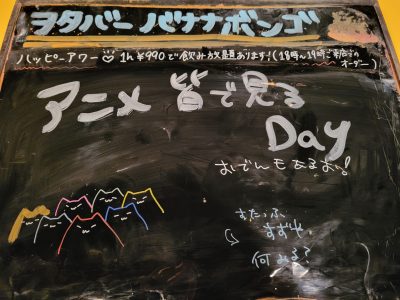 ヲタバー バナナボンゴ
ハッピーアワー♡ 1h ¥990で飲み放題あります!(18時〜19時ご来店の
オーダー)
アニメ 皆で見る
Day
おでんもあるお!
すたっふ
すずや
何みる?